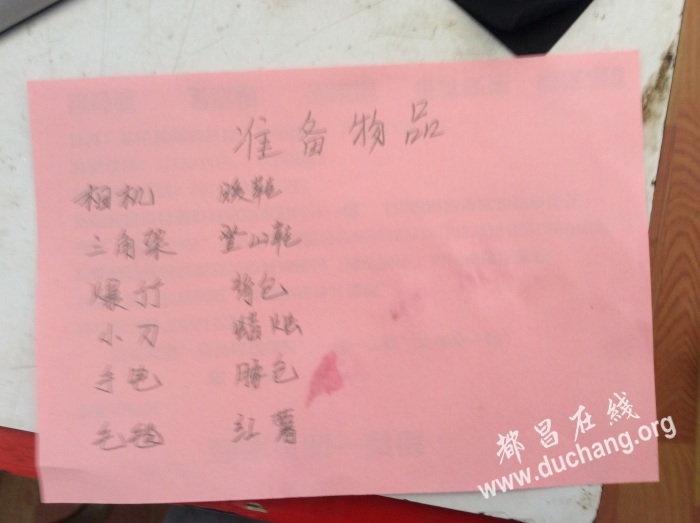 准备物品
相机 暖鞋
三角架 登山靴
爆竹 背包
小刀 蜡烛
手电 睡包
毛毯 红薯
都昌在线
www.duchang.org